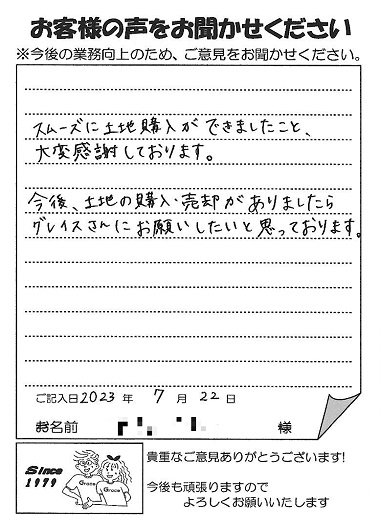 お客様の声をお聞かせください
※今後の業務向上のため、ご意見をお聞かせください。
スムーズに土地購入ができましたこと、
大変感謝しております。
今後、土地の購入・売却がありましたら
グレイスさんにお願いしたいと思っております。
ご記入日2023年 7月 22日
お名前 様
Since
1979
Grace
Grace
貴重なご意見ありがとうございます!
今後も頑張りますので
よろしくお願いいたします